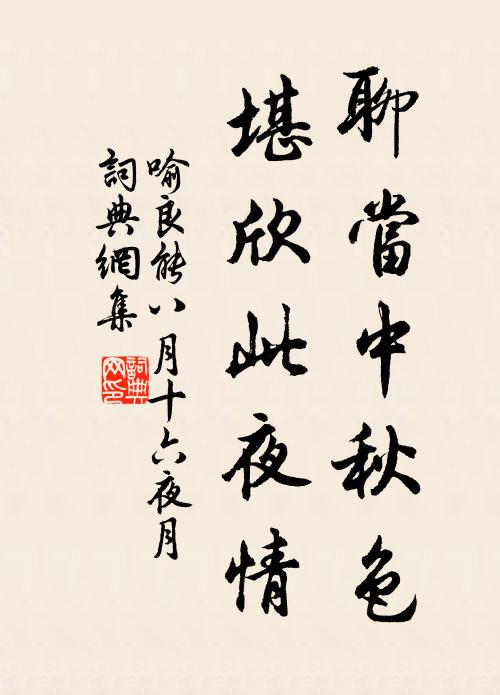 聊當中秋色
堪欣此夜情
喻良能八月十六夜月
詞典網集
詞典
网印